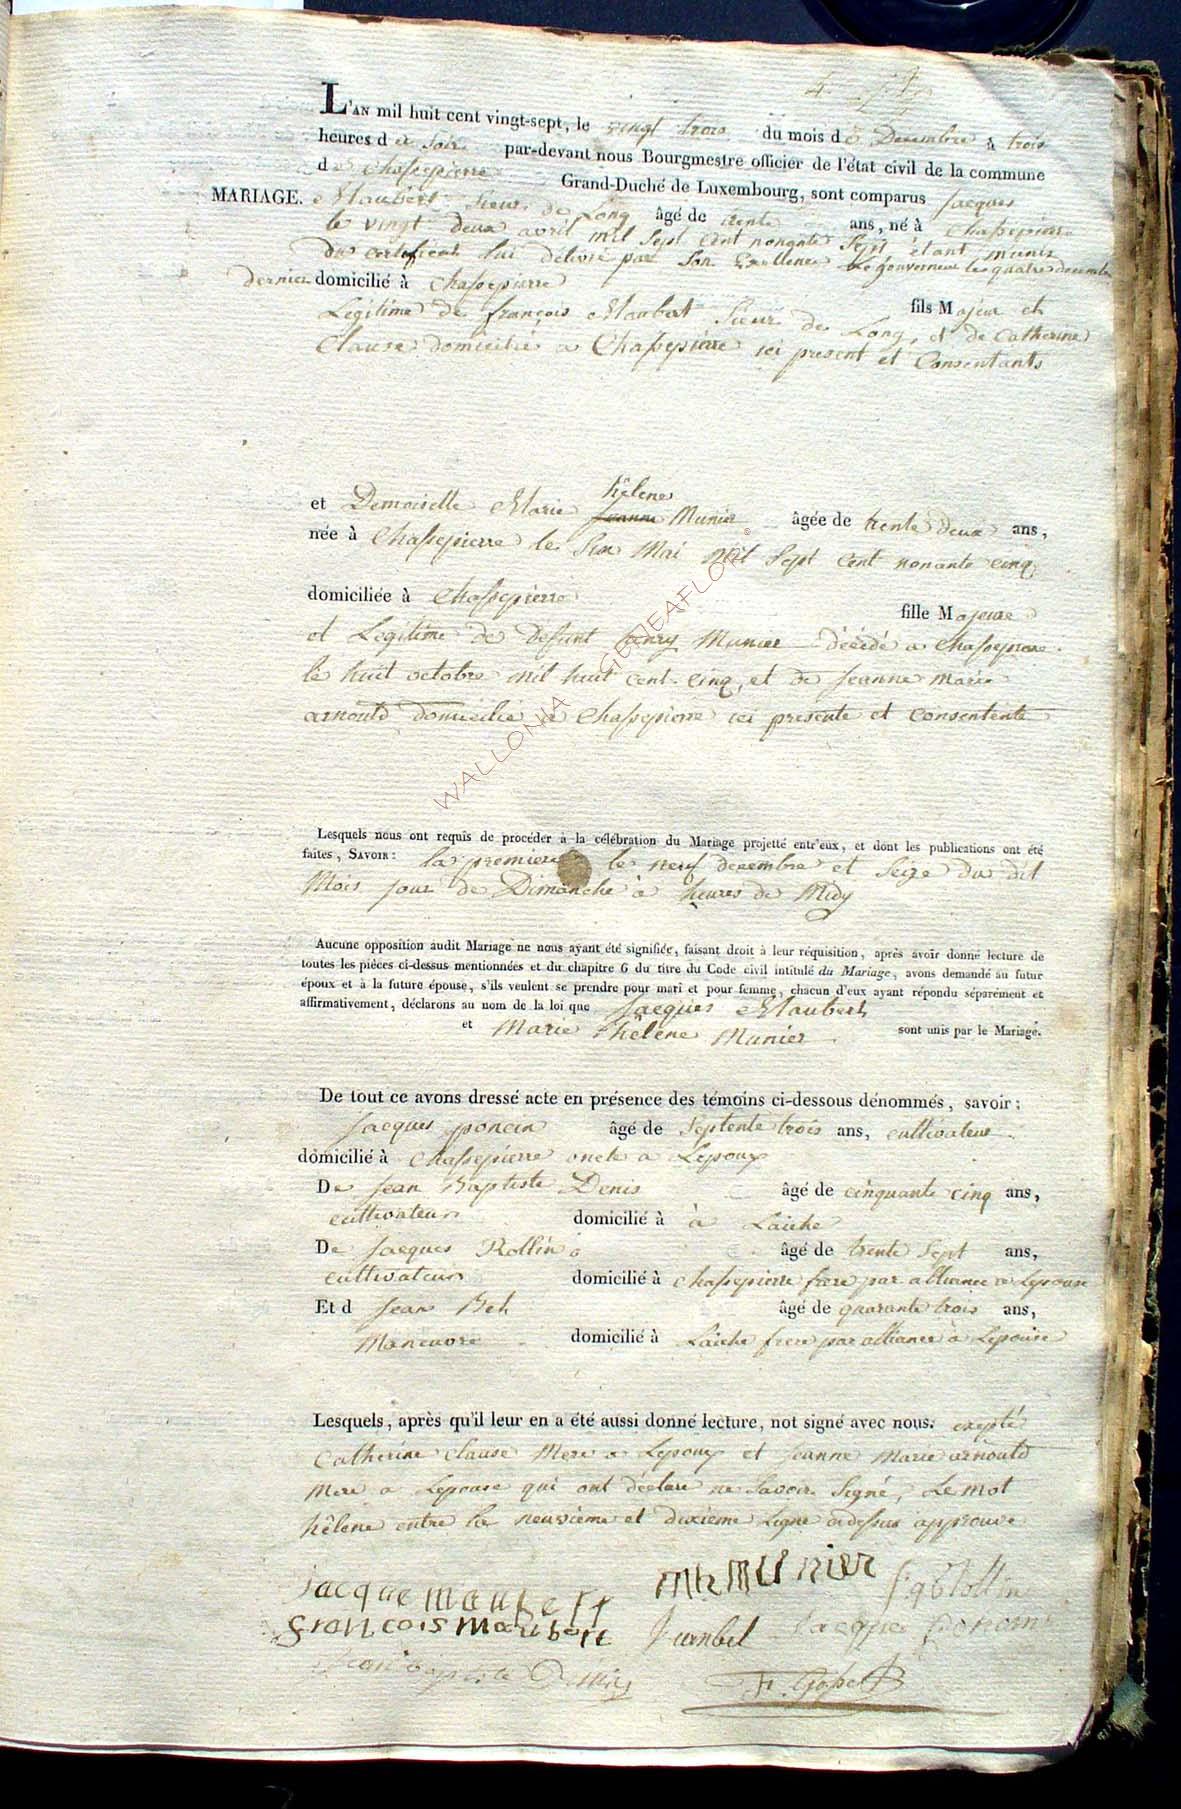 L'AN mil huit cent vingt-sept, le vingt trois du mois de Decembre à trois
heures de Soir par-devant nous Bourgmestre officier de l'état civil de la commune
de Chassepierre Grand-Duché de Luxembourg, sont comparus Jacques
MARIAGE. Maubert Sieur de Long âgé de trente ans, né à Chassepierre
le vingt deux avril mil Sept Cent nonante Sept étant munis
du certificat lui délivré par Son Exellence Le gouverneur le quatre decembre
dernier domicilié à Chassepierre
fils Majeur et
Légitime de françois Maubert Sieur de Long, et de Catherine
Clause domicilié a Chassepierre ici present et Consentants
hêlene
et Demoiselle Marie Jeanne Munier âgée de trente deux ans,
née à Chassepierre le Six Mai mil Sept Cent nonante cinq
domiciliée à Chassepierre
fille Majeure
et Legitime de Defunt henry Munier décédé a Chassepierre
le huit octobre mil huit cent cinq, et de Jeanne Marie
arnould domicilié a Chassepierre ici presente et consentente
WALLONIA GENEAFLOR ©
Lesquels nous ont requis de procéder à la célébration du Mariage projetté entr'eux, et dont les publications ont été
faites, SAVOIR: la premiere le neuf decembre et Seize du dit
Mois jour de Dimanche a heures de Midy
Aucune opposition audit Mariage ne nous ayant été signifiée, faisant droit à leur réquisition, après avoir donné lecture de
toutes les pièces ci-dessus mentionnées et du chapitre 6 du titre du Code civil intitulé du Mariage, avons demandé au futur
époux et à la future épouse, s'ils veulent se prendre pour mari et pour femme, chacun d'eux ayant répondu séparément et
affirmativement, déclarons au nom de la loi que Jacques Maubert
et Marie hêlene Munier sont unis par le Mariage.
De tout ce avons dressé acte en présence des témoins ci-dessous dénommés, savoir:
Jacques poncin âgé de Septente trois ans, cultivateur
domicilié à Chassepierre oncle a Lepoux
De Jean Baptiste Denis âgé de cinquante cinq ans,
cultivateur domicilié à à Laiche
De Jacques Rollin âgé de trente Sept ans,
cultivateur domicilié à Chassepierre frere par alliance a Lepouse
Et d Jean Bel âgé de quarante trois ans,
Maneuvre domicilié à Laiche frere par alliance à Lepouse
Lesquels, après qu'il leur en a été aussi donné lecture, ont signé avec nous. exepté
Catherine Clause Mere a Lepoux et Jeanne Marie arnould
Mere a Lepouse qui ont déclare ne Savoir Signé, Le mot
hêlene entre la neuvieme et dixieme Ligne cidessus approuvé
jacque maubert mh munier Jq Rollin
francois maubert Jeanbel Jacque Poncin
Jean baptiste Denis F. Gofset